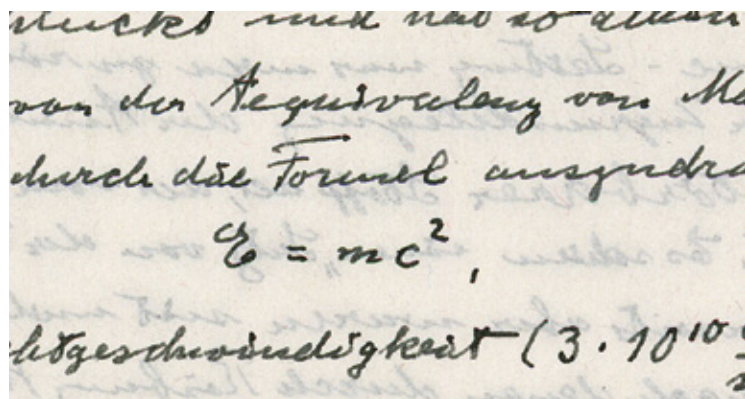 von der Aequivalenz von Ma
durch die Formel auszudrü
E = mc²,
chtgeschwindigkeit (3 · 10¹⁰